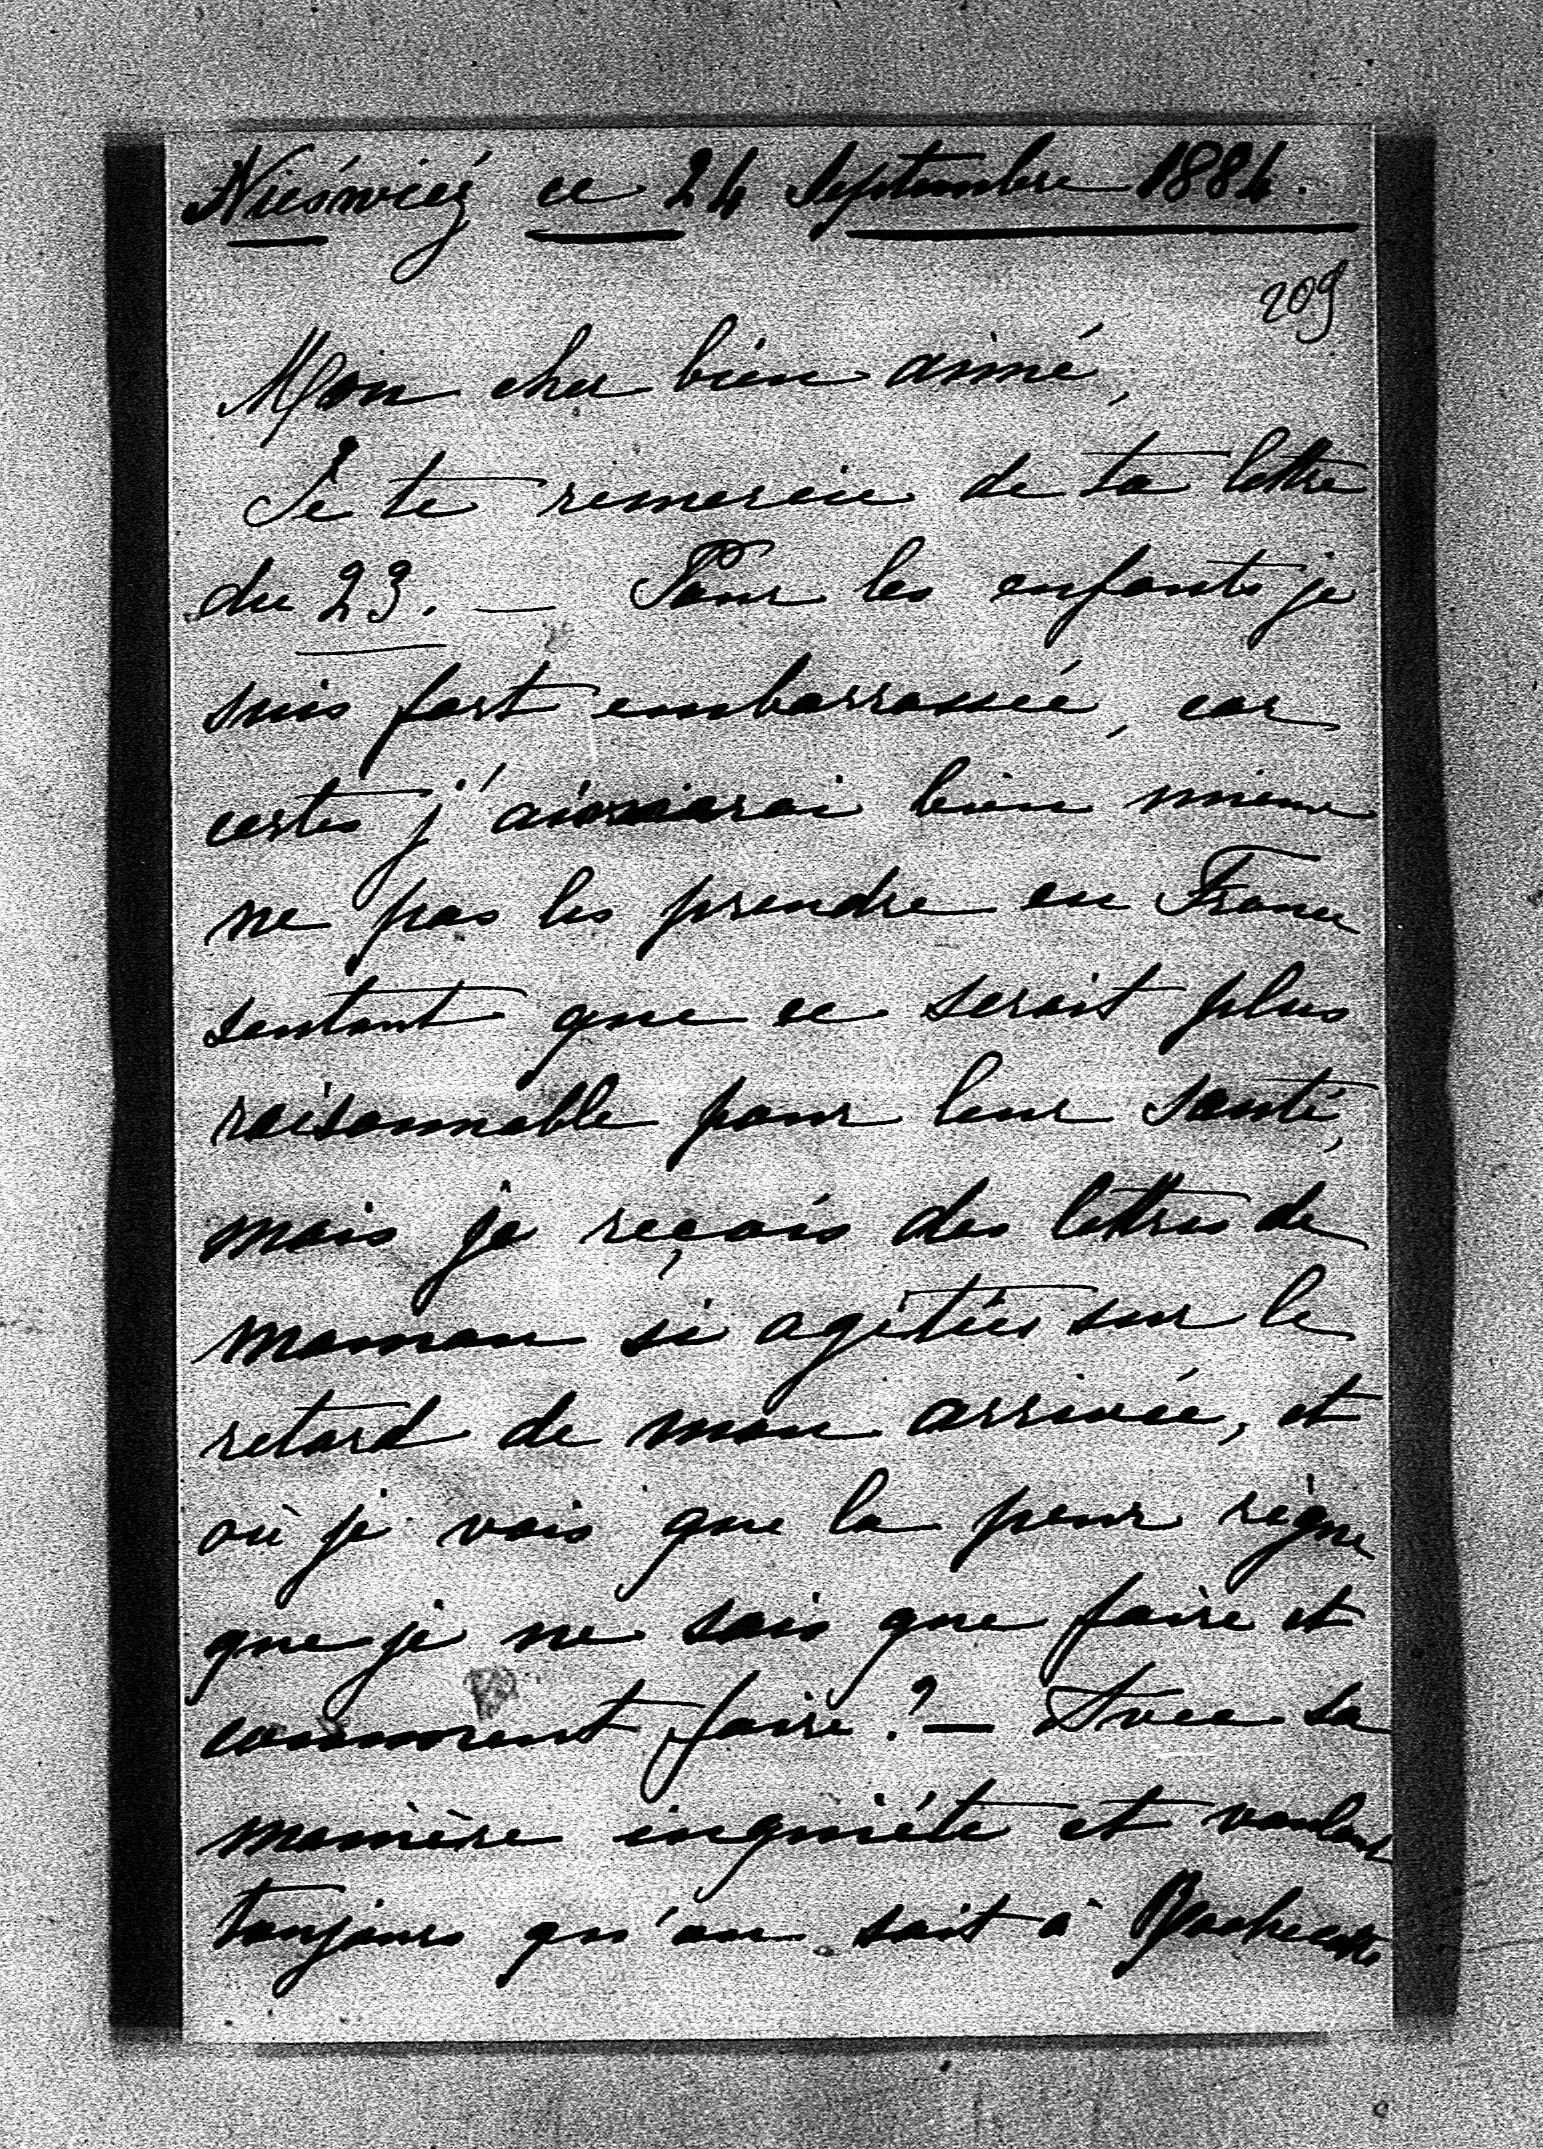 Nieśwież ce 24 Septembre 1884.
209
Mon cher bien aimé,
Je te remercie de ta lettre
du 23. — Pour les enfants je
suis fort embarrassée, car
certes j'aimerai bien mieux
ne pas les prendre en France
sentant que ce serait plus
raisonnable pour leur santé,
mais je reçois des lettres de
maman si agitées sur le
retard de mon arrivée, et
où je vois que la peur règne
que je ne sais que faire et
comment faire? — Avec sa
manière inquiète et voulant
toujours qu'on soit à Rochecotte